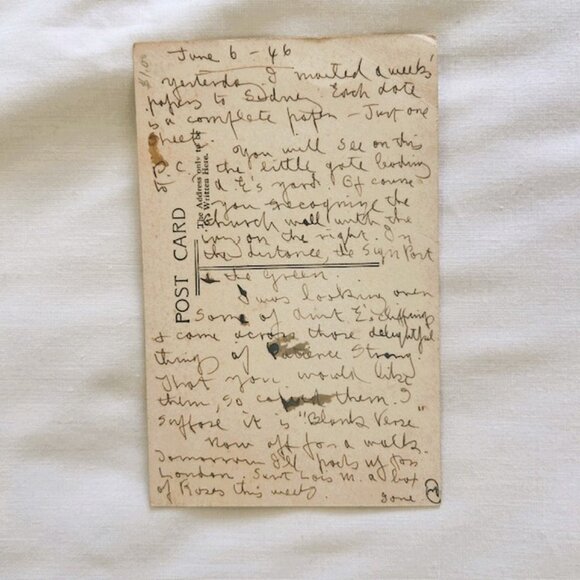 $1.00
June 6 - 46
Yesterday I mailed a weeks'
papers to Sidney Each date
is a complete paper - Just one
sheet.
You will see on this
P.C. the little gate leading
to E's yard. Of course
you recognize the
church wall with the
inn on the right. In
the distance, the Sign Post
& the Green.
I was looking over
some of Aunt E's clippings
& came across those delightful
things of Patience Strong
That you would like
them, so copied them. I
suppose it is "Blank Verse"
Now off for a walk.
Tomorrow I'll pack up for
London. Sent Lois M. a box
of Roses this week.
POST CARD
The Address only to be
Written Here.